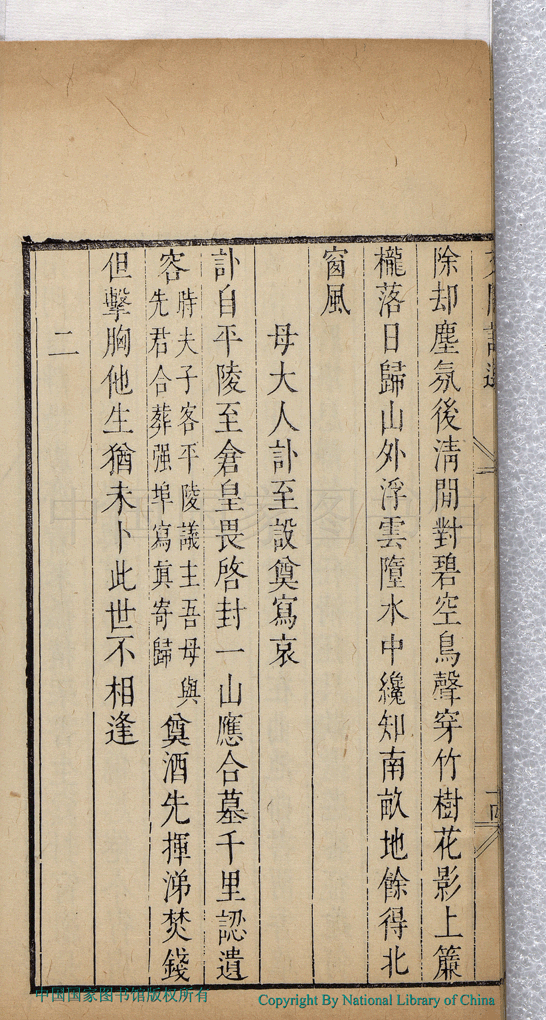 除却塵氛後淸閒對碧空鳥聲穿竹樹花影上簾
櫳落日歸山外浮雲墮水中纔知南畝地餘得北
窗風
母大人訃至設奠寫哀
訃自平陵至倉皇畏啓封一山應合墓千里認遺
容
時夫子客平陵議主吾母與
先君合葬强埠寫眞寄歸
奠酒先揮涕焚錢
但擊胸他生猶未卜此世不相逢
二
中国国家图书馆
中国国家图书馆版权所有
Copyright By National Library of China